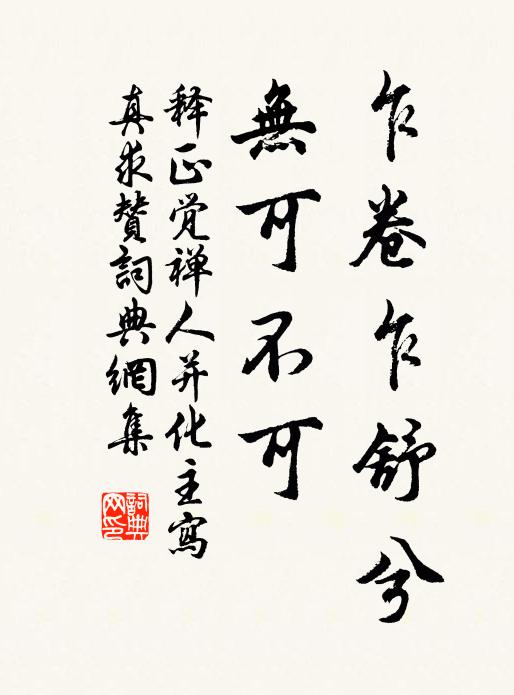 乍卷乍舒兮
無可不可
释正觉禅人并化主寫
真求赞詞典網集
詞典网印